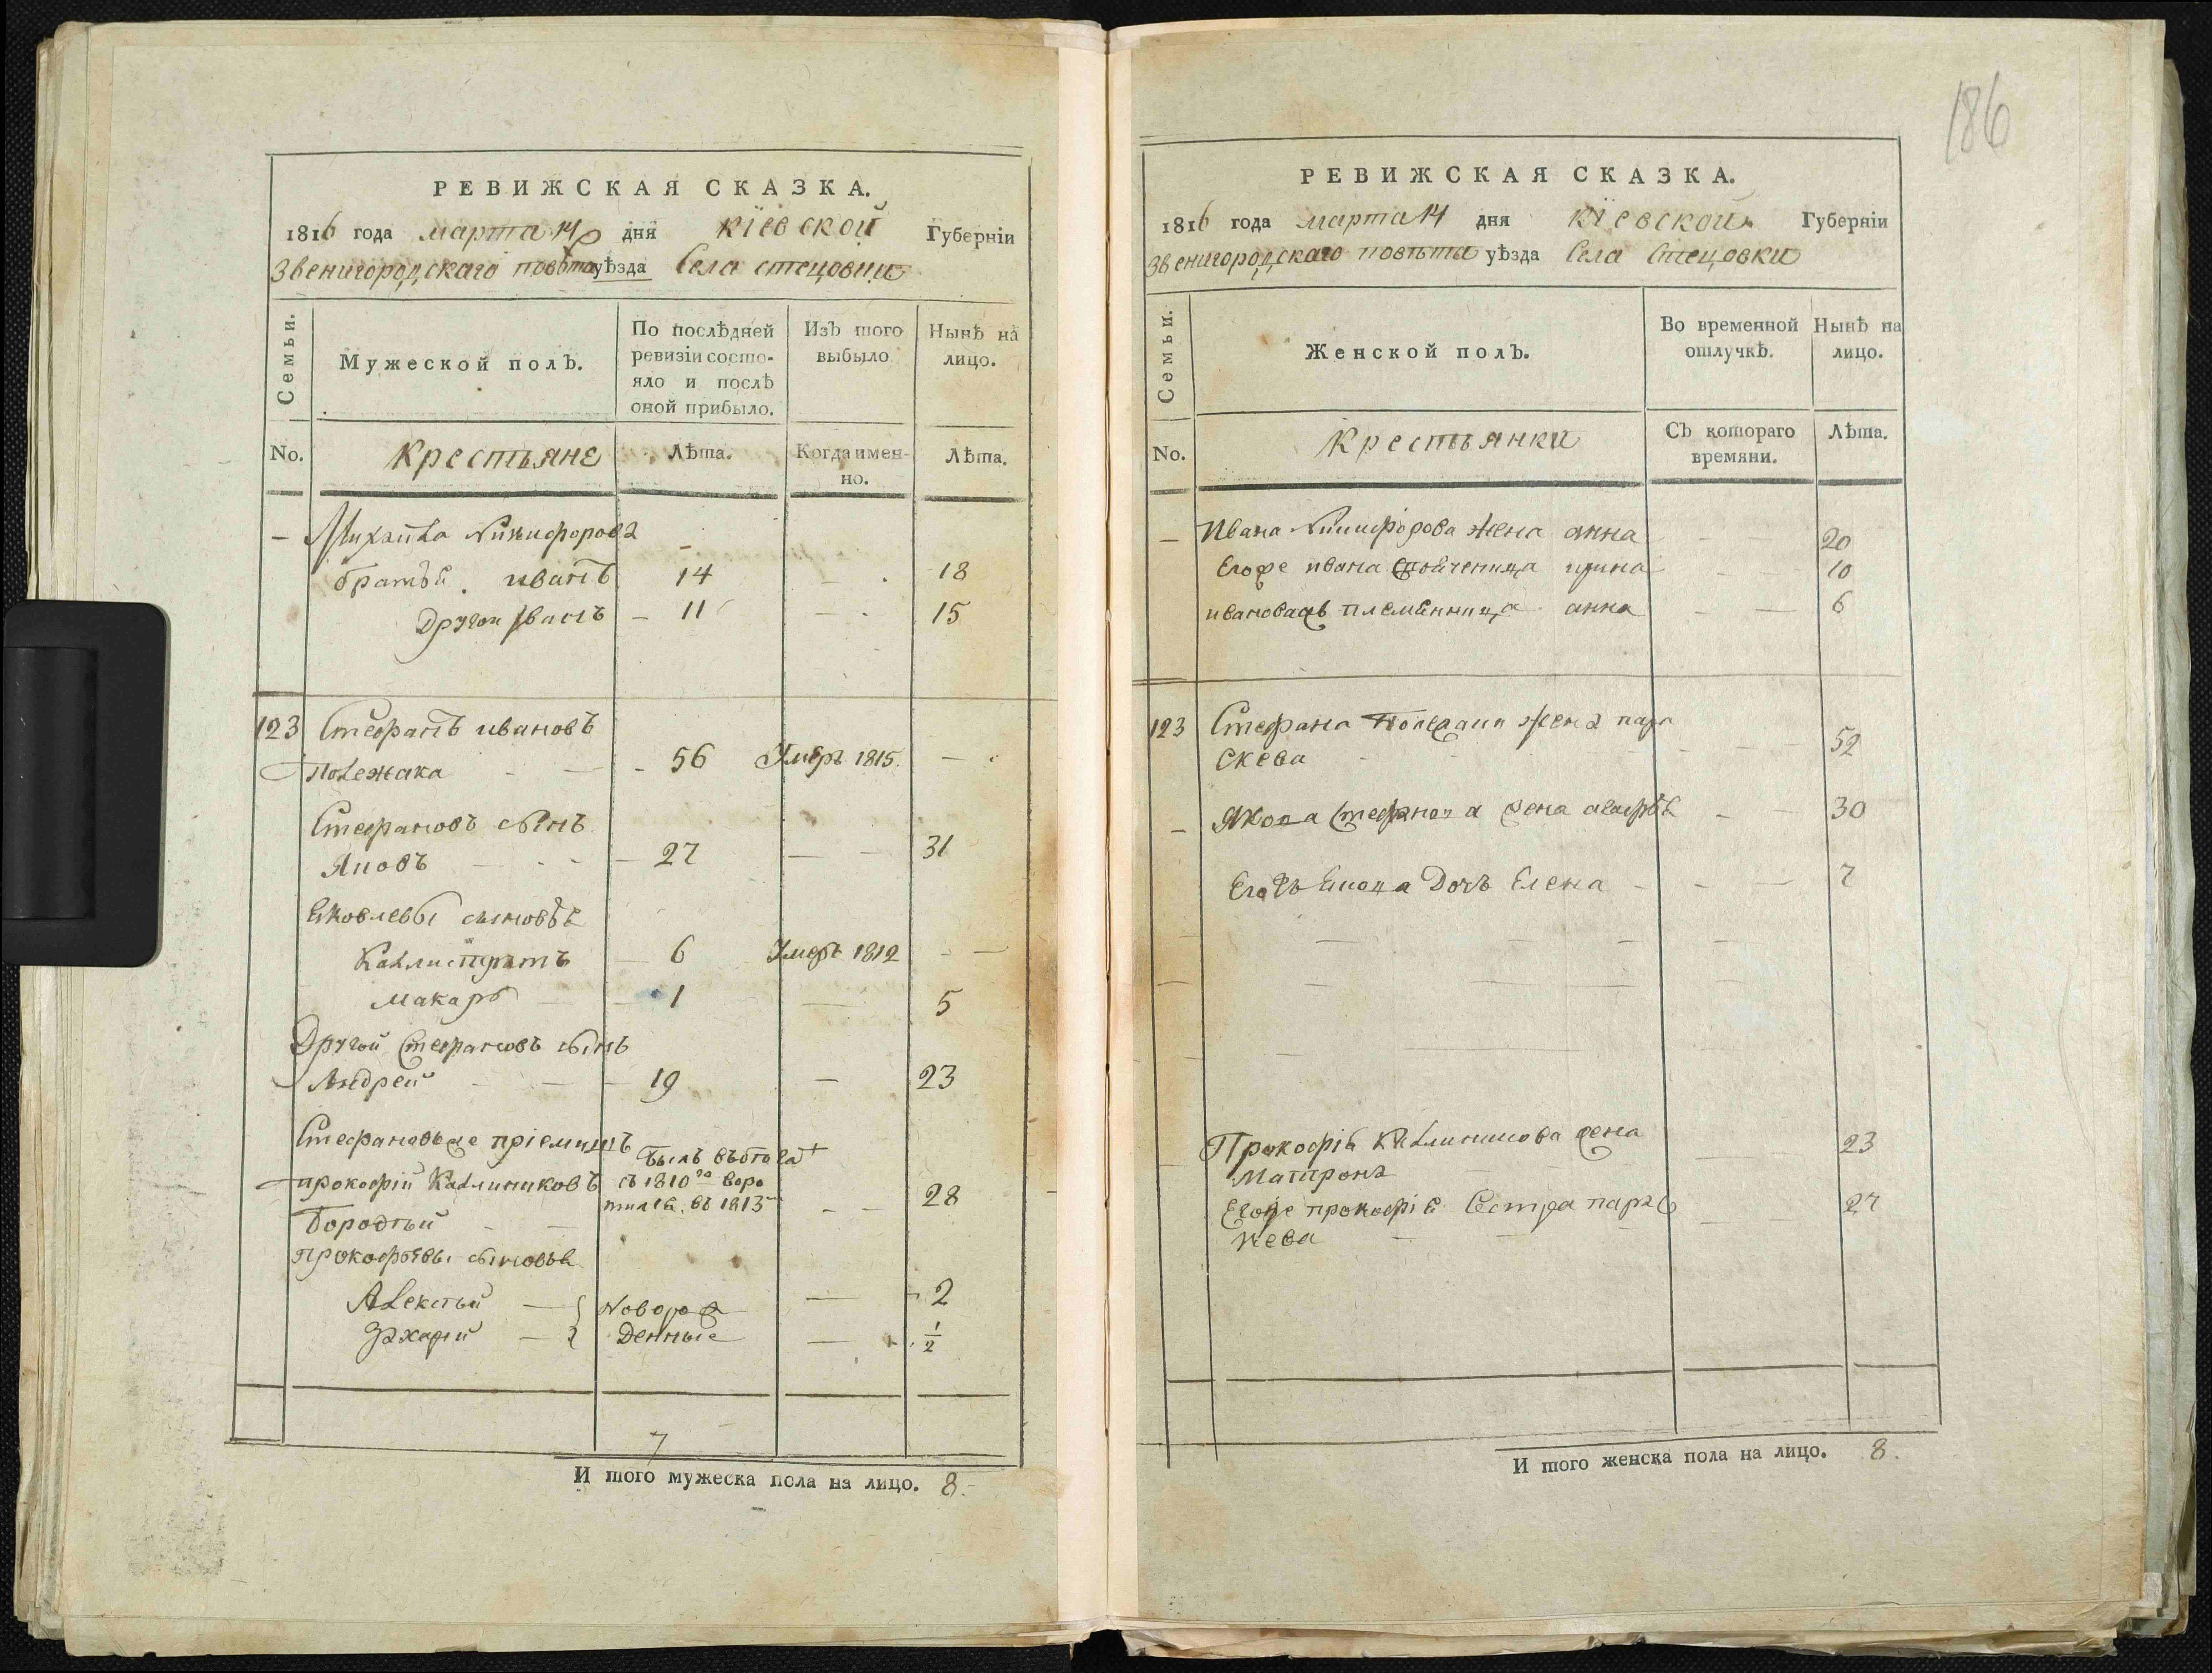 РЕВИЖСКАЯ СКАЗКА.
1816 года марта 14 дня кіевской Губерніи
Звенигородскаго повѣта уѣзда Села стецовки
Семьи.
Мужеской полъ.
По послѣдней ревизіи состо-
яло и послѣ
оной прибыло.
Изъ того
выбыло.
Нынѣ на
лицо.
No.
Крестьяне
Лѣта.
Когда имен-
но.
Лѣта.
— Михайла Никифорова
братья иванъ 14 — 18
Другой иванъ — 11 — 15
123 Стефанъ ивановъ
Полежака — 56 Умеръ 1815. —
Стефановъ сынъ
Яковъ — 27 — 31
Яковлевы сыновья
Каллистратъ — 6 Умеръ 1812 —
Макаръ — 1 — 5
Другой Стефановъ сынъ
Андрей — 19 — 23
Стефановъ же пріемышъ
Былъ въ бѣгахъ
прокофій Калиниковъ съ 1810го воро
тился въ 1813 — 28
прокофьевы сыновья
Алексѣй — Новорож 2
Захарій — денные ½
7
И того мужеска пола на лицо. 8.
186
РЕВИЖСКАЯ СКАЗКА.
1816 года марта 14 дня кіевской Губерніи
Звенигородскаго повѣта уѣзда Села Стецовки
Семьи.
Женской полъ.
Во временной
отлучкѣ.
Нынѣ на
лицо.
No.
Крестьянки
Съ котораго
времяни.
Лѣта.
— Ивана Никифорова жена анна — 20
Егоже ивана ирина — 10
племянница анна — 6
123 Стефана Полежаки жена пара
скева — 52
— Якова Стефанова жена агафія — 30
Егожъ Якова Дочь Елена — 7
Прокофія Калиникова жена
Матрона 23
Егоже прокофія Сестра парас
кева — 27
И того женска пола на лицо. 8.